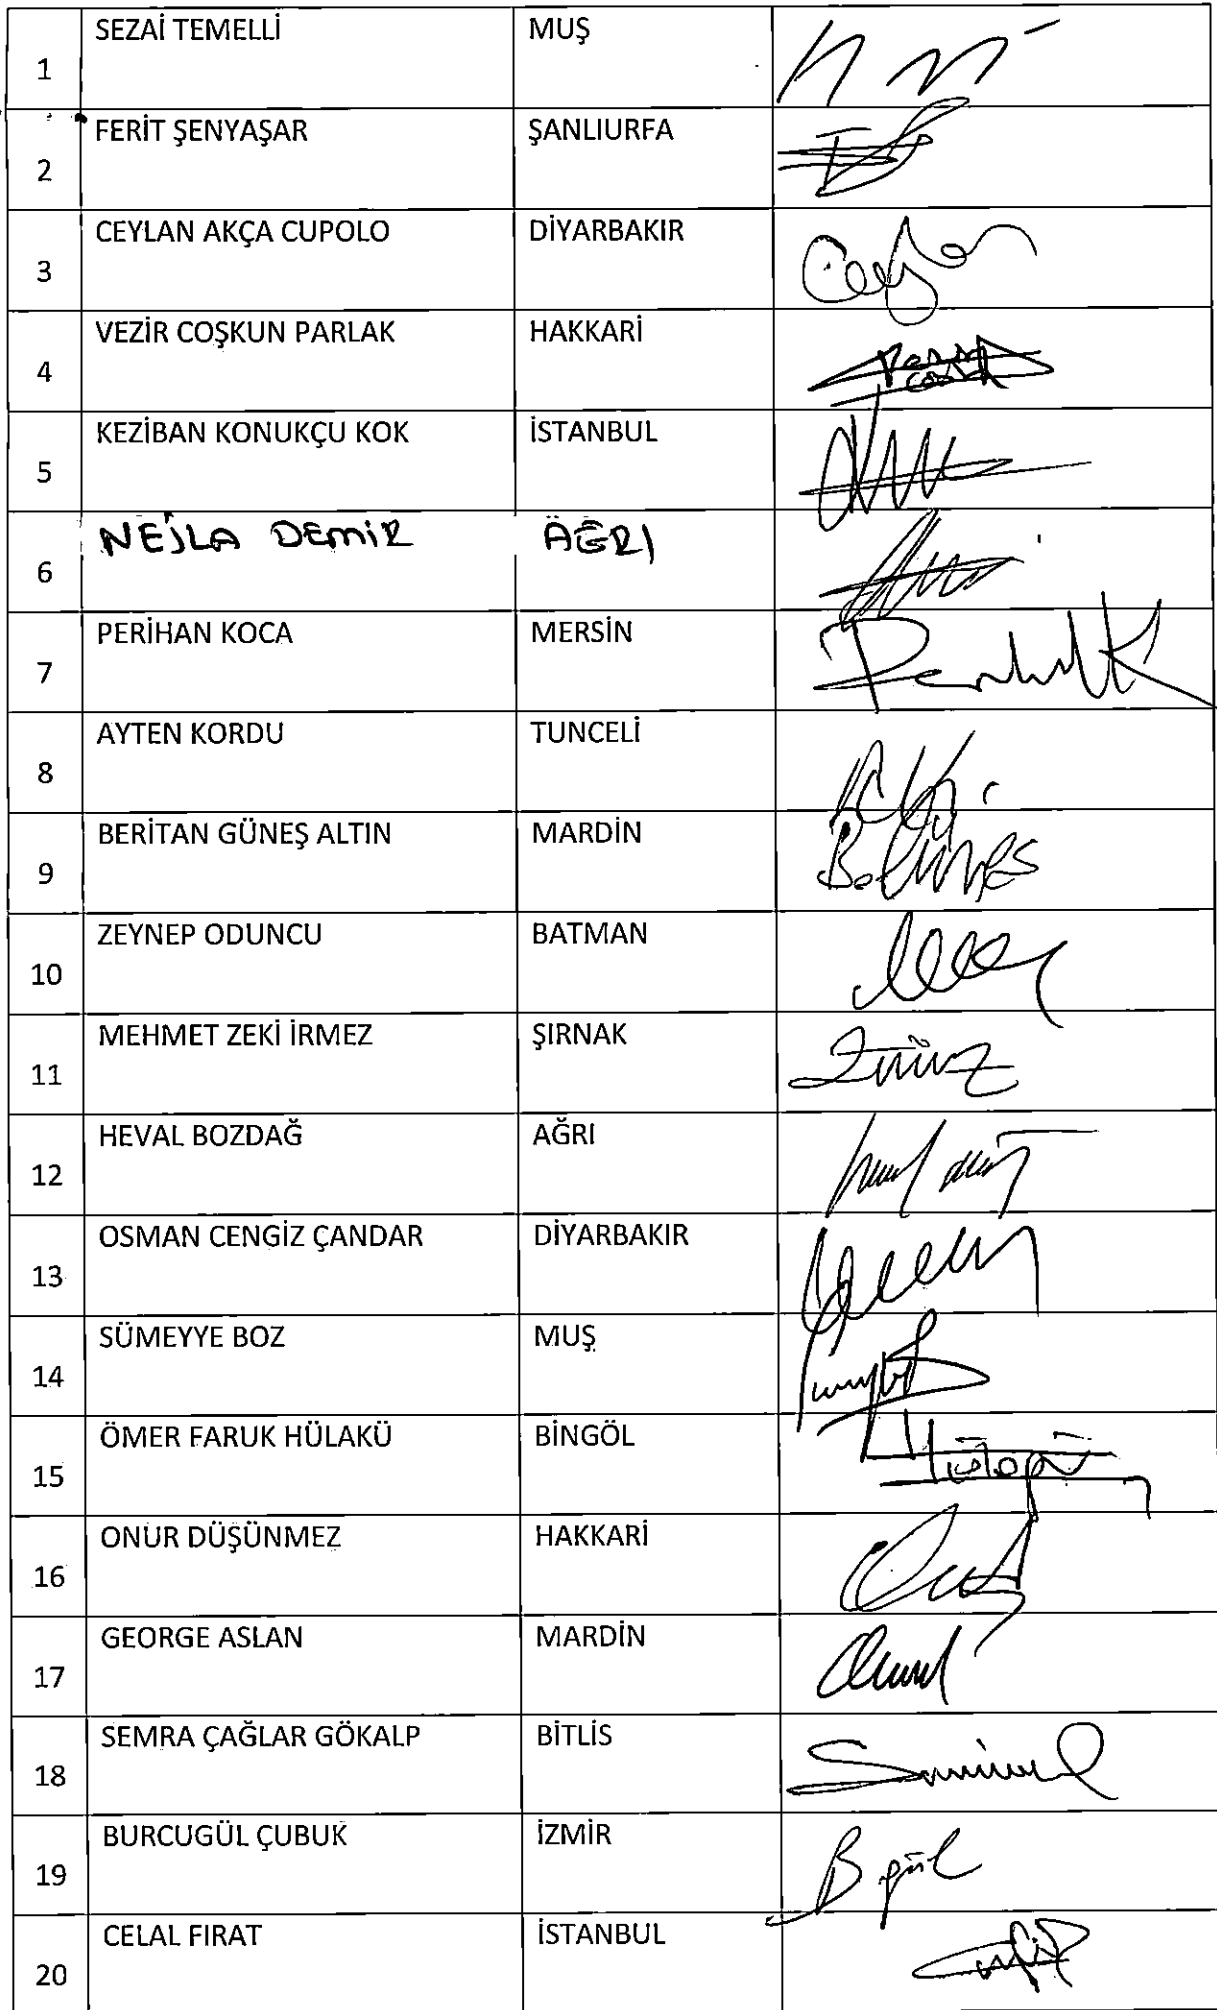 1 SEZAİ TEMELLİ MUŞ
2 FERİT ŞENYAŞAR ŞANLIURFA
3 CEYLAN AKÇA CUPOLO DİYARBAKIR
4 VEZİR COŞKUN PARLAK HAKKARİ
5 KEZİBAN KONUKÇU KOK İSTANBUL
6 NEJLA DEMİR AĞRI
7 PERİHAN KOCA MERSİN
8 AYTEN KORDU TUNCELİ
9 BERİTAN GÜNEŞ ALTIN MARDİN B.Güneş
10 ZEYNEP ODUNCU BATMAN
11 MEHMET ZEKİ İRMEZ ŞIRNAK
12 HEVAL BOZDAĞ AĞRI
13 OSMAN CENGİZ ÇANDAR DİYARBAKIR
14 SÜMEYYE BOZ MUŞ
15 ÖMER FARUK HÜLAKÜ BİNGÖL
16 ONUR DÜŞÜNMEZ HAKKARİ
17 GEORGE ASLAN MARDİN
18 SEMRA ÇAĞLAR GÖKALP BİTLİS
19 BURCUGÜL ÇUBUK İZMİR B gül
20 CELAL FIRAT İSTANBUL